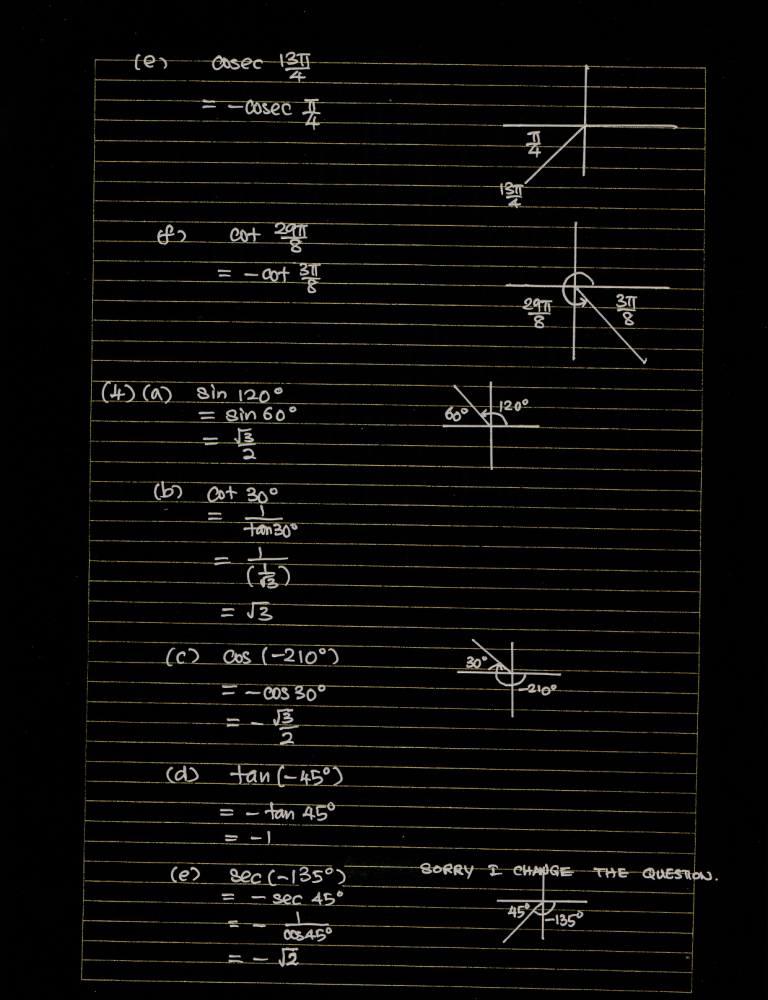 (e) cosec 13π/4
= -cosec π/4
π/4
13π/4
(f) cot 29π/8
= -cot 3π/8
29π/8 3π/8
(4) (a) sin 120°
= sin 60°
= √3/2
60° 120°
(b) cot 30°
= 1/tan30°
= 1/(1/√3)
= √3
(c) cos (-210°)
= -cos 30°
= -√3/2
30° -210°
(d) tan (-45°)
= - tan 45°
= -1
(e) sec (-135°) SORRY I CHANGE THE QUESTION.
= - sec 45°
= - 1/cos45°
= - √2
45° -135°